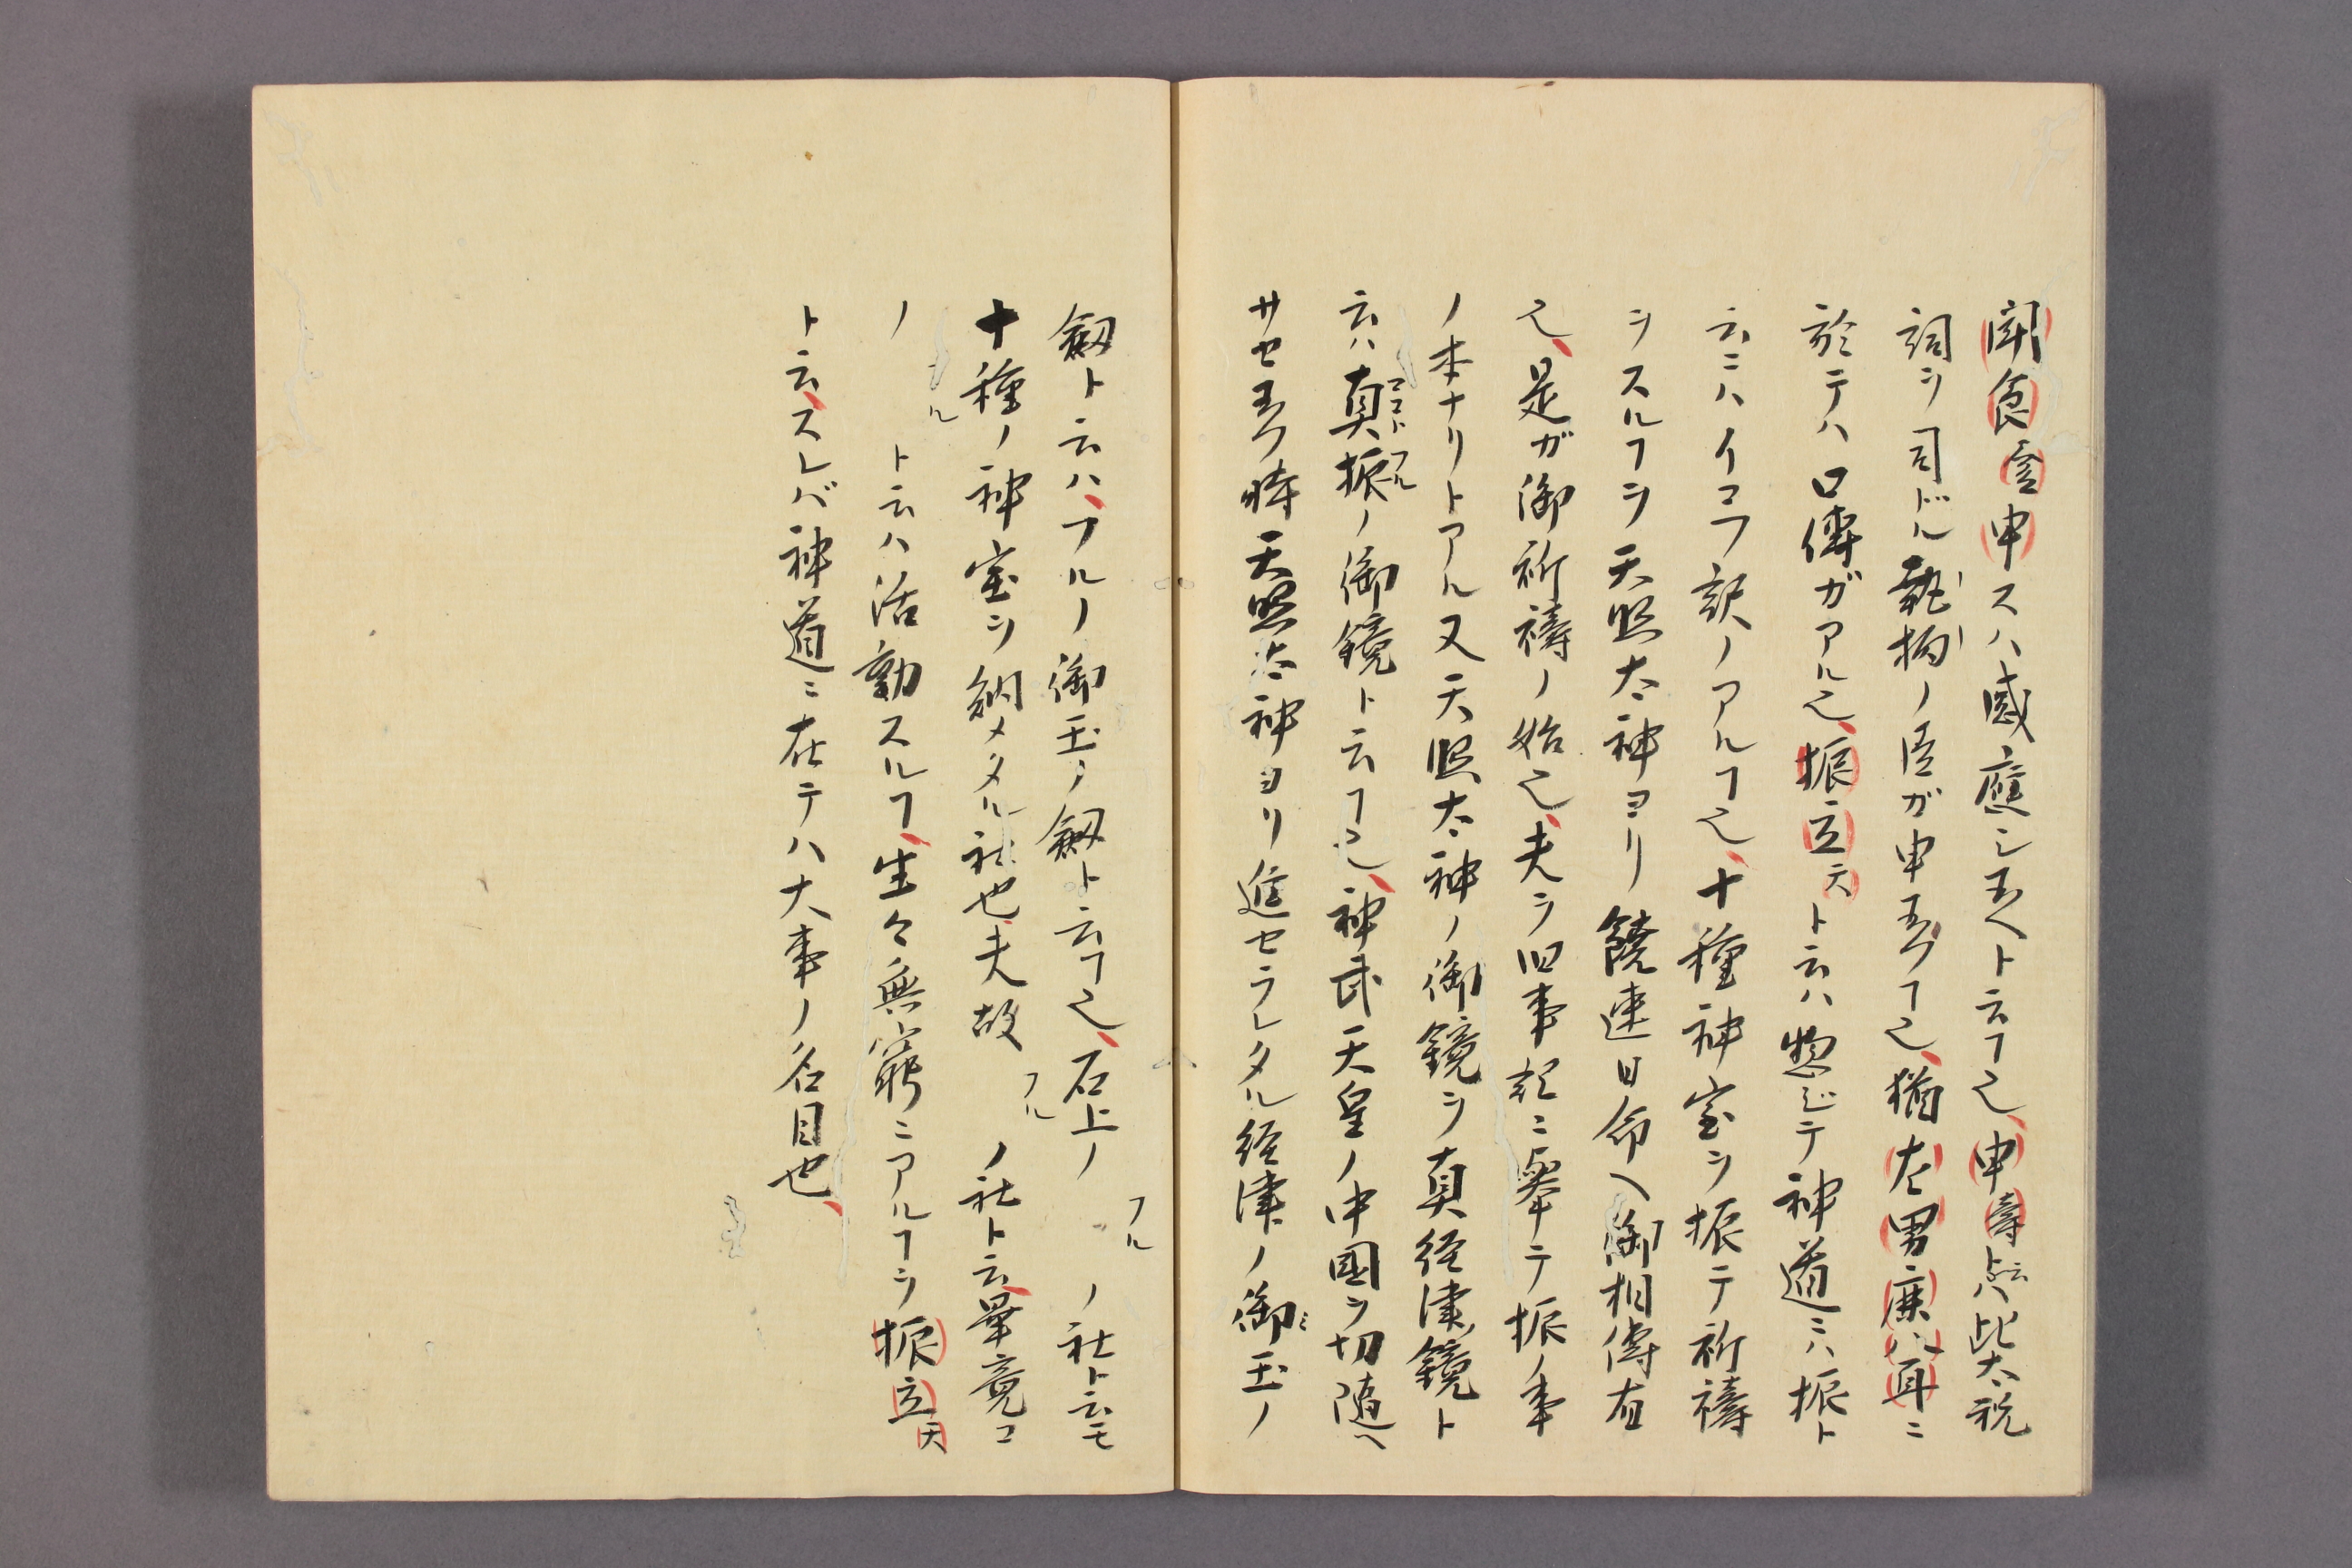 聞食宣申スハ感應シ玉ヘト云フ也、申寿ト云ハ此太祝
詞ヲ司ドル執抦ノ臣ガ申玉フフ也、猶左男鹿八耳ニ
於テハ口傳ガアル也、振立天ト云ハ惣ジテ神道ニハ振ト
云ニハイコフ訳ノアルフ也、十種神宝ヲ振テ祈禱
ヲスルフヲ天照太神ヨリ饒速日命ヘ御相傳有
也、是ガ御祈禱ノ始也、夫ヲ旧事記ニ挙テ振ノ本
ノ本ナリトアル又天照太神ノ御鏡ヲ真経津鏡ト
云ハ真振ノ御鏡ト云フ也、神武天皇ノ中國ヲ切随ヘ
マコト フル
サセ玉フ時天照太神ヨリ進セラレタル経津ノ御玉ノ
ミ
劔ト云ハ、フルノ御玉ノ劔ト云フ也、石上ノ ノ社ト云モ
フル
十種ノ神宝ヲ納メタル社也、夫故 ノ社ト云、畢竟コ
フル
ノ ト云ハ活動スルフ、生々無窮ニアルフヲ振立天
ル
ト云、スレバ神道ニ在テハ大事ノ名目也、